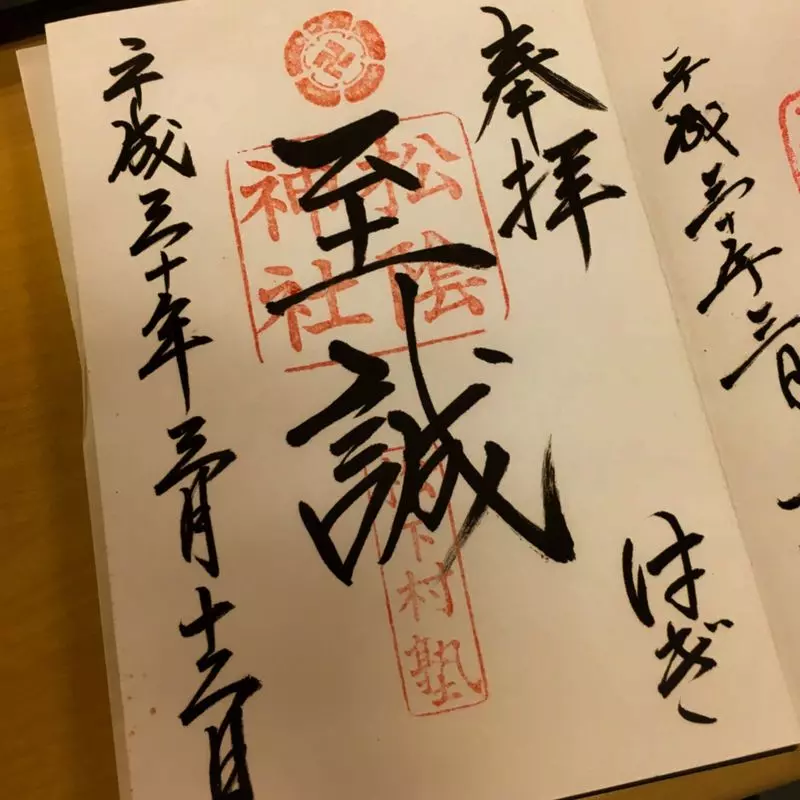 奉拝
はぎ
松陰
神社
至誠
松下村塾
平成三十年三月十二日
平成三十年三月